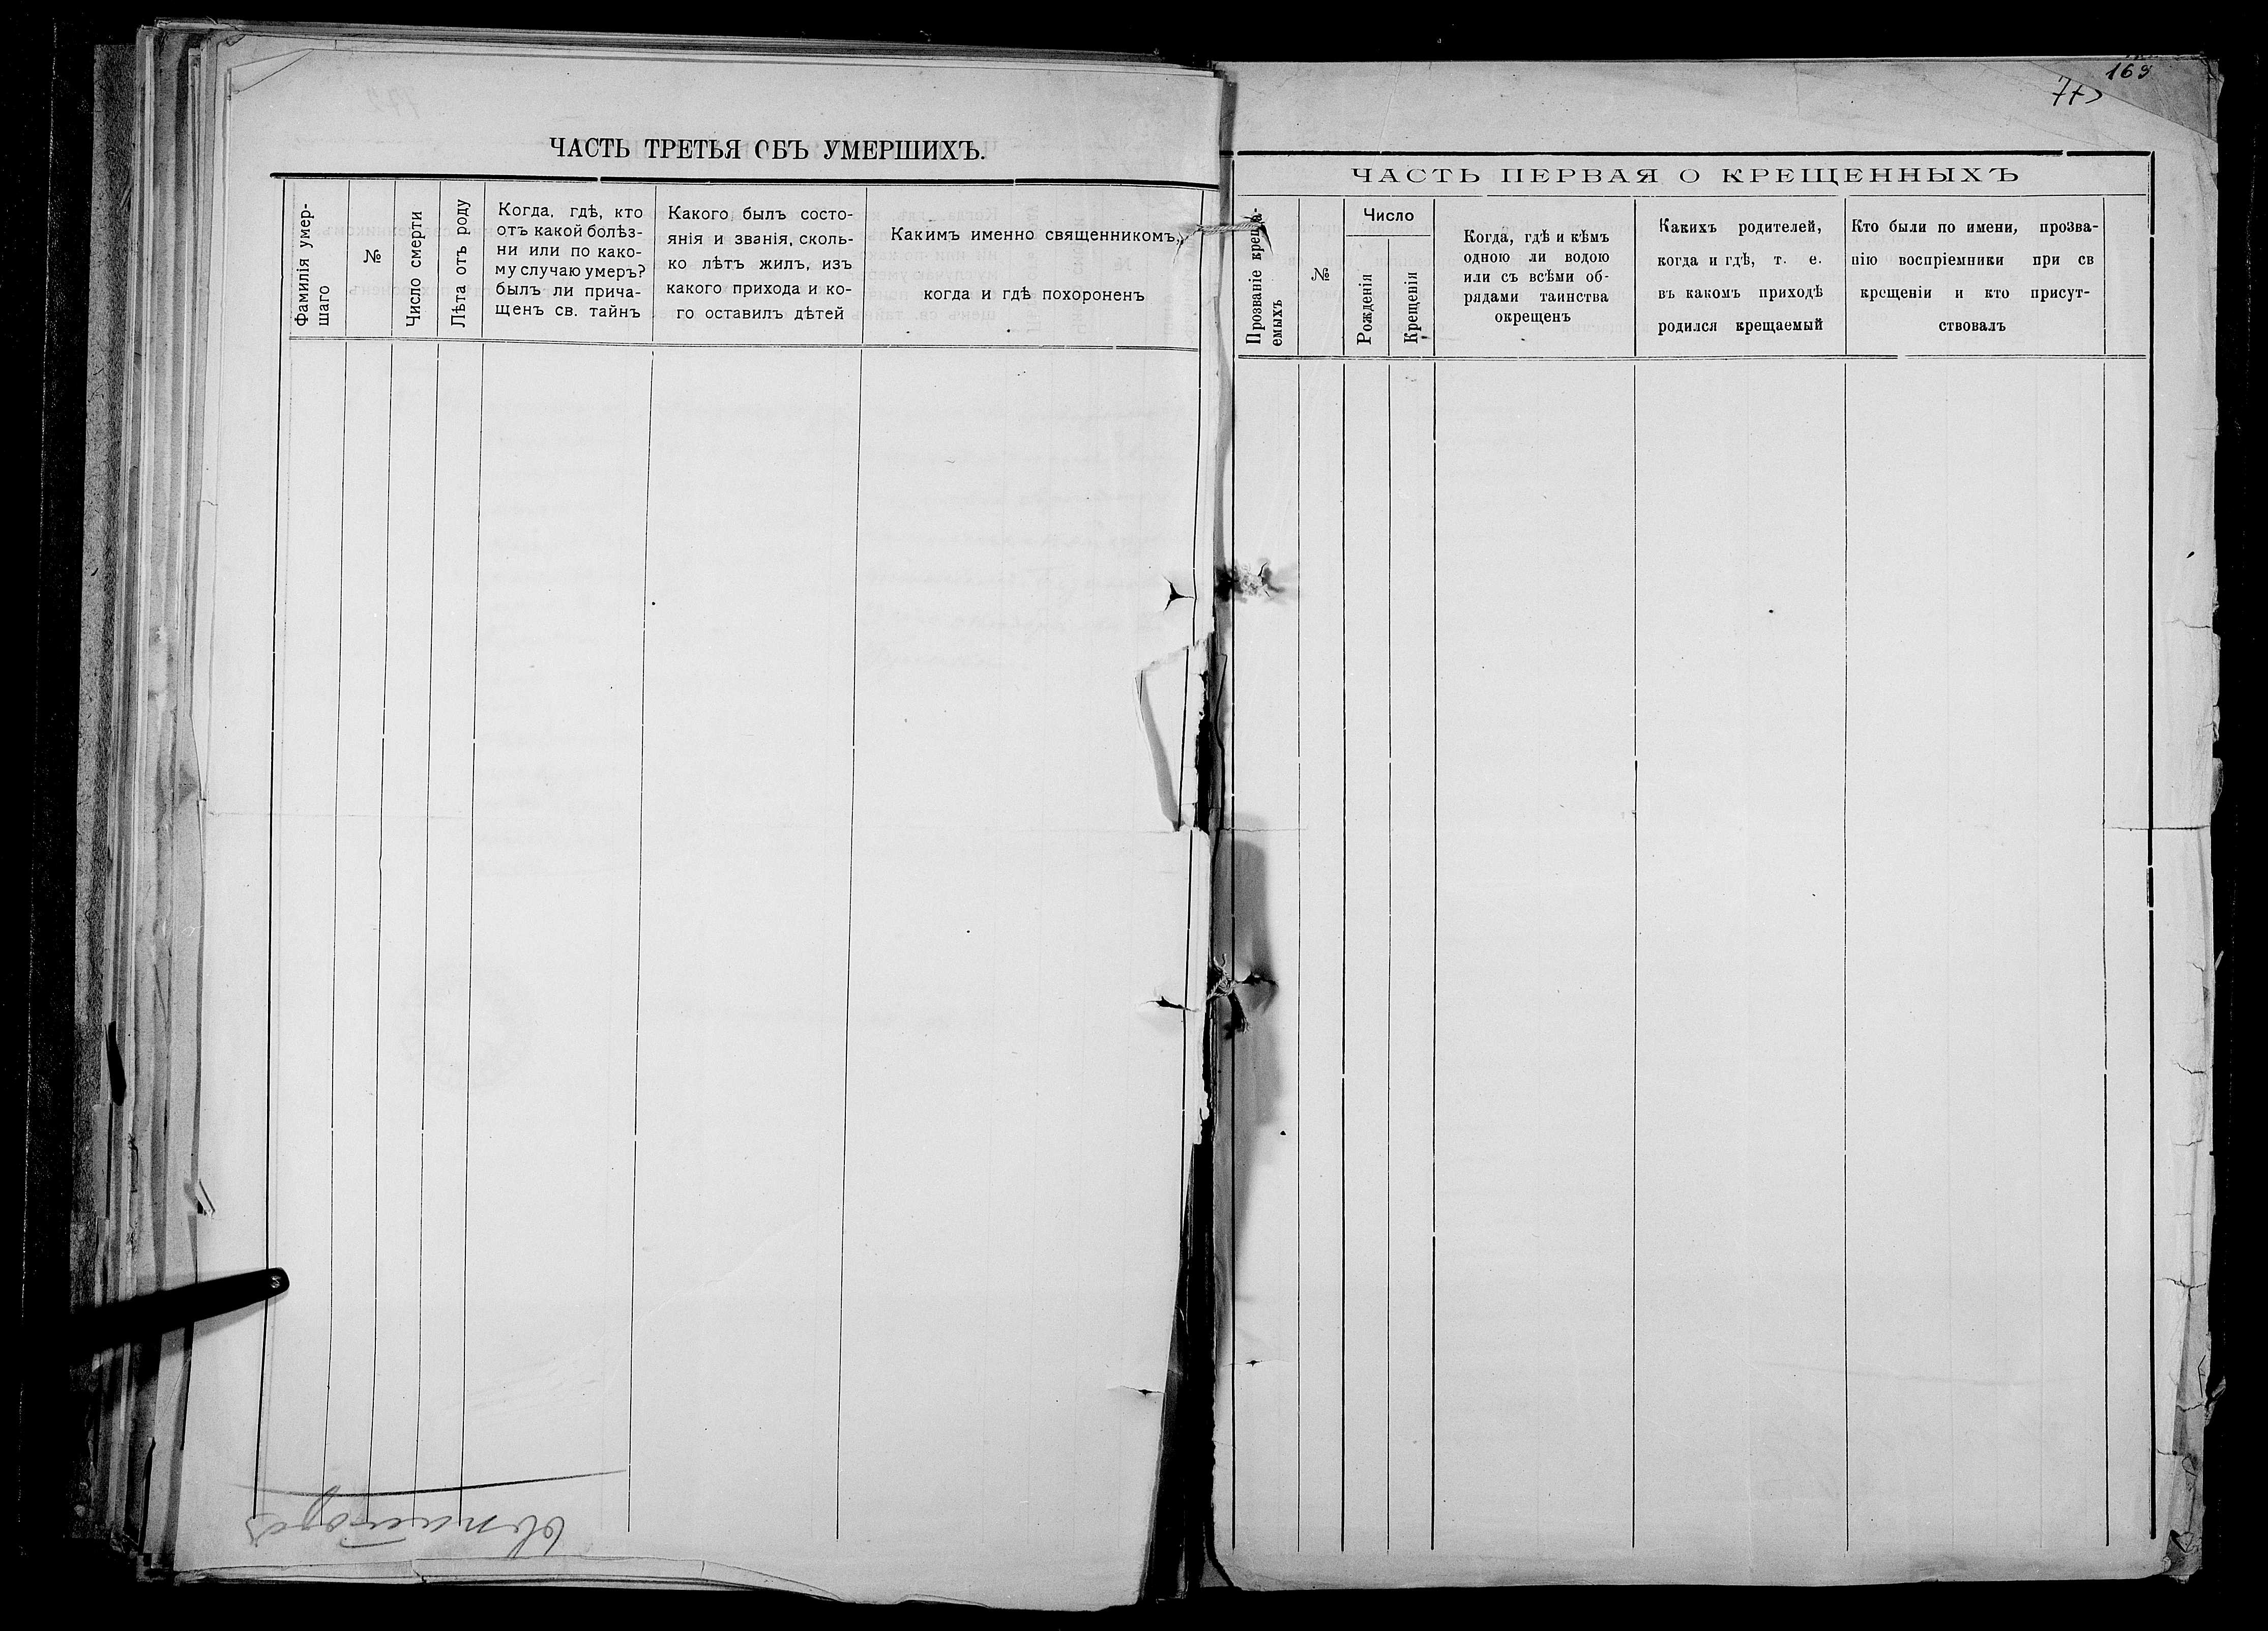 ЧАСТЬ ТРЕТЬЯ ОБЪ УМЕРШИХЪ.
Фамилія умер-
шаго
№
Число смерти
Лѣта отъ роду
Когда, гдѣ, кто
отъ какой болѣз-
ни или по како-
му случаю умеръ?
былъ ли прича-
щенъ св. тайнъ
Какого былъ состо-
янія и званія, сколь-
ко лѣтъ жилъ, изъ
какого прихода и ко-
го оставилъ дѣтей
Какимъ именно священникомъ,
когда и гдѣ похороненъ
163
ЧАСТЬ ПЕРВАЯ О КРЕЩЕННЫХЪ
Прозваніе креща-
емыхъ
№
Число
Рожденія
Крещенія
Когда, гдѣ и кѣмъ
одною ли водою
или съ всѣми об-
рядами таинства
окрещенъ
Какихъ родителей,
когда и гдѣ, т. е.
въ какомъ приходѣ
родился крещаемый
Кто были по имени, прозва-
нію воспріемники при св
крещеніи и кто присут-
ствовалъ